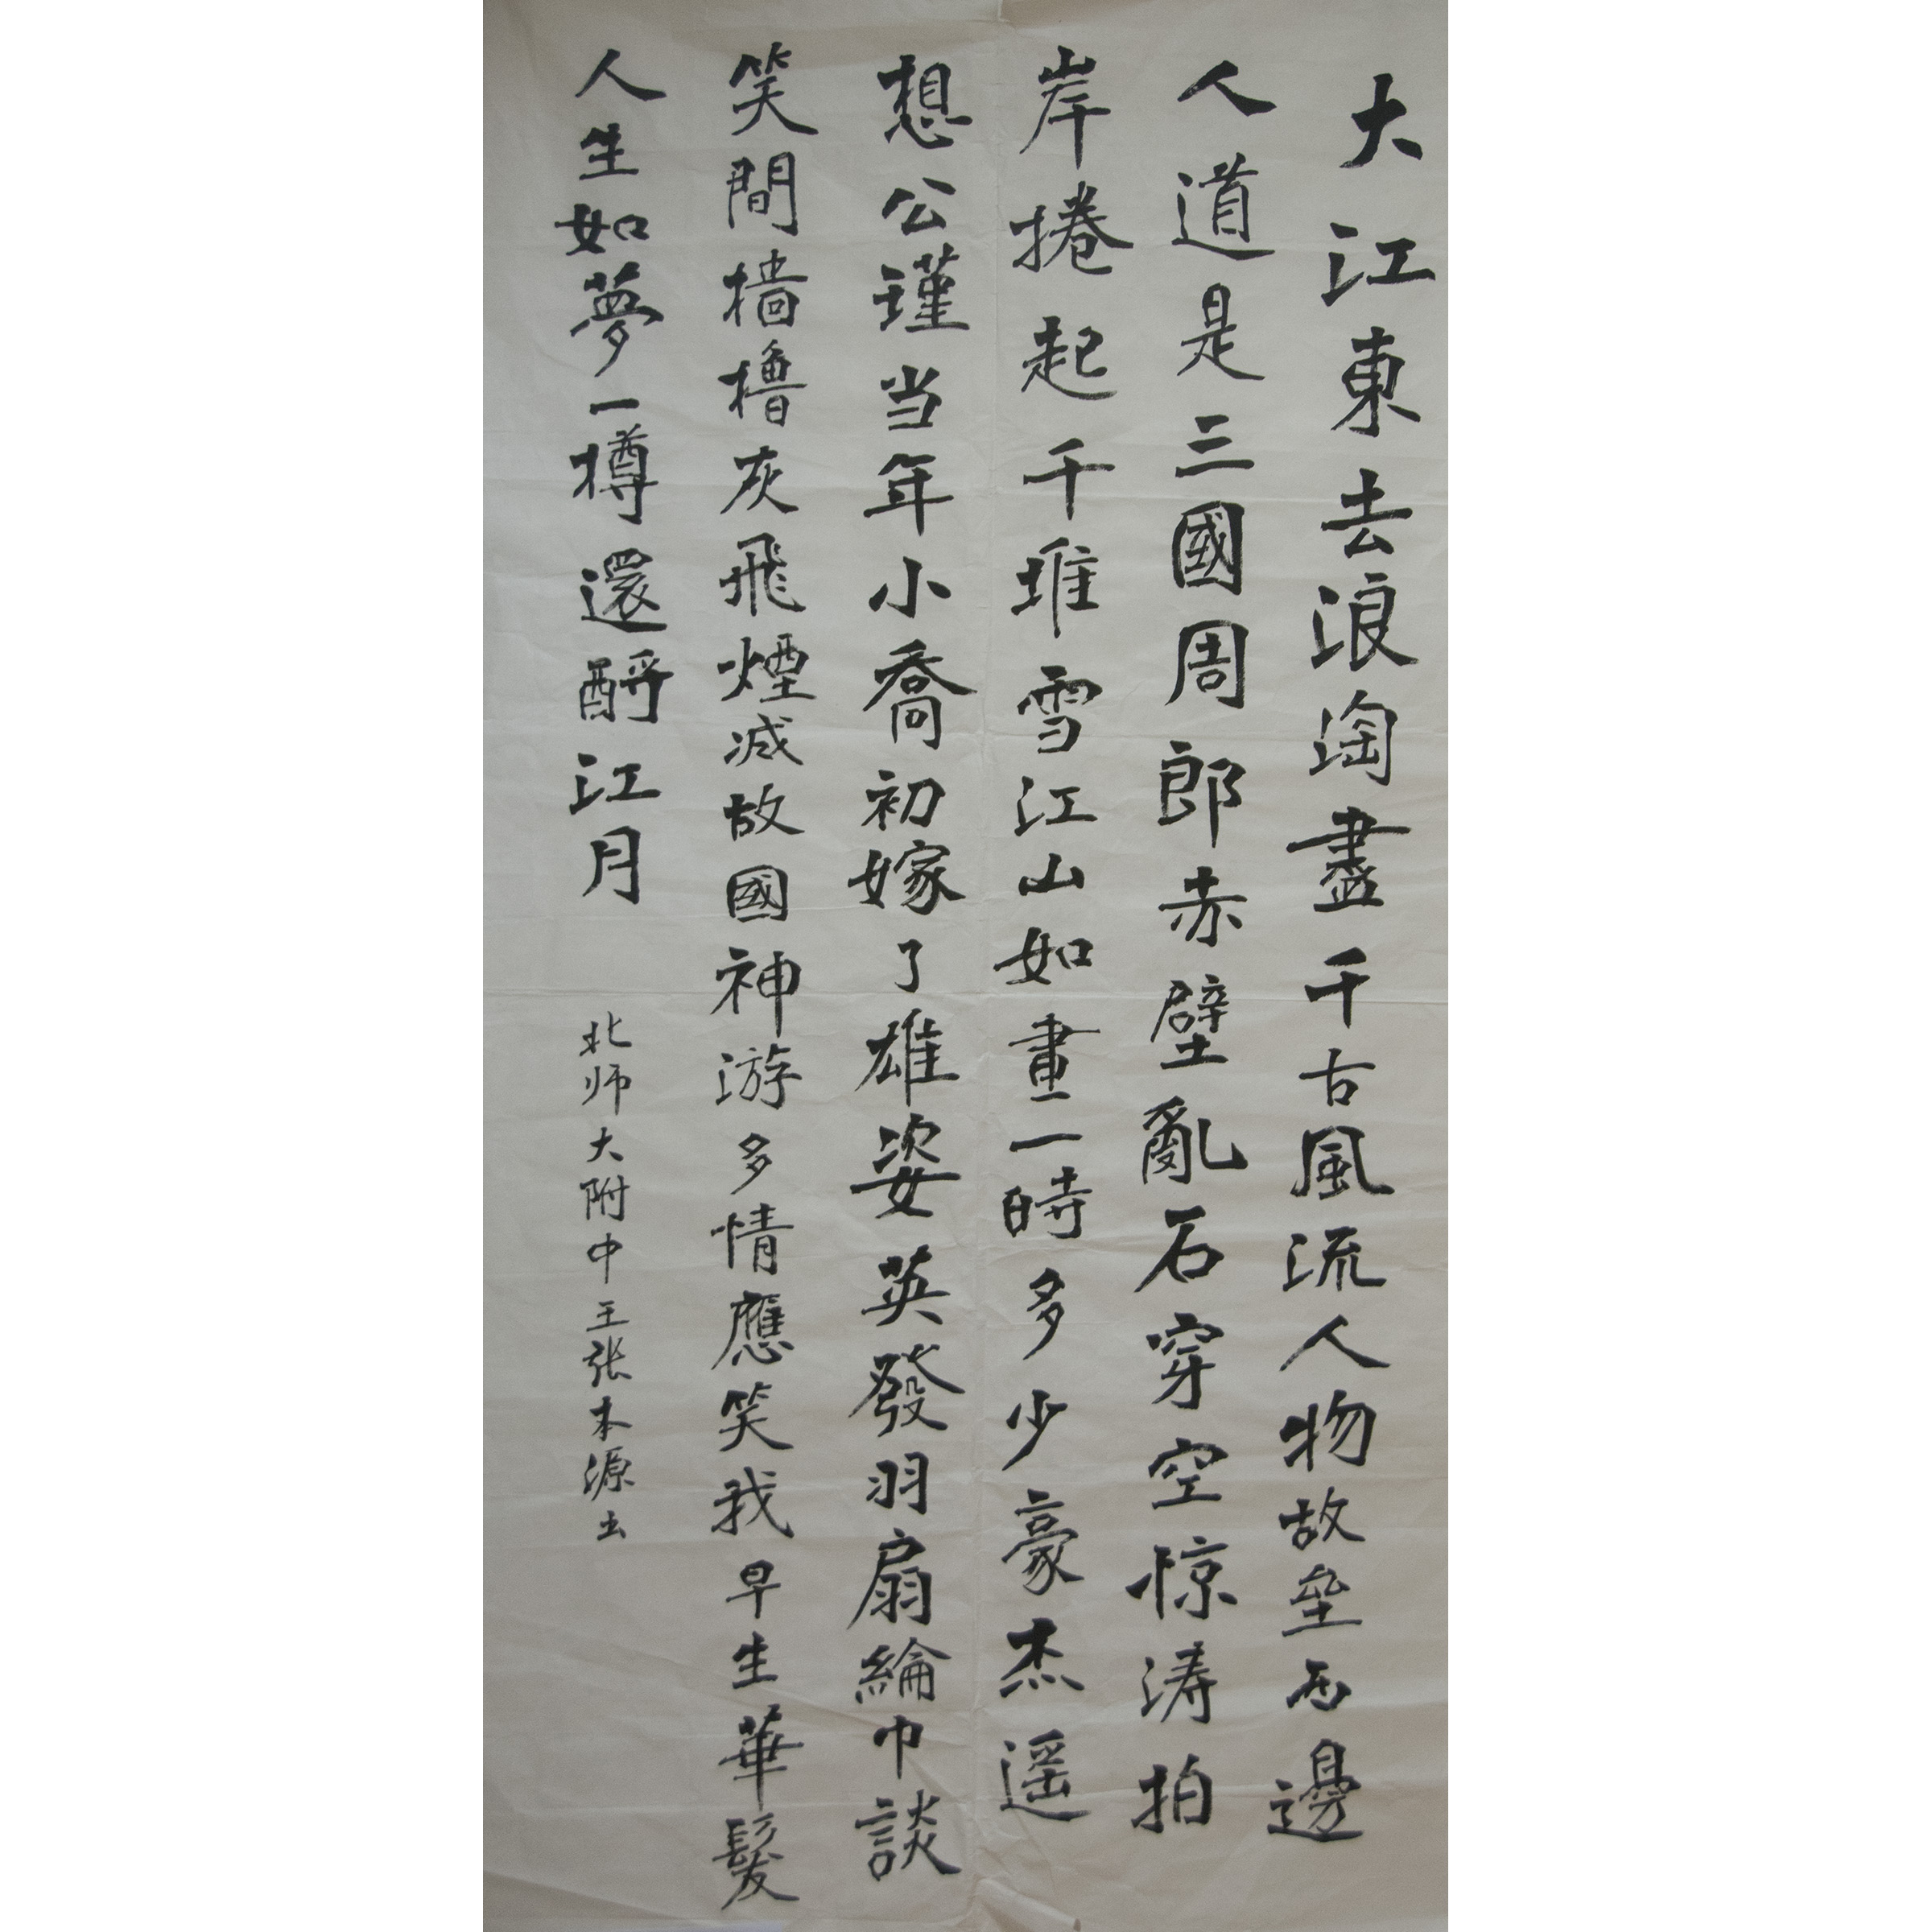 大江東去浪淘盡千古風流人物故壘西邊
人道是三國周郎赤壁亂石穿空惊涛拍
岸捲起千堆雪江山如畫一時多少豪杰遥
想公瑾当年小喬初嫁了雄姿英發羽扇綸巾談
笑間樯橹灰飛煙减故國神游多情應笑我早生華髮
人生如夢一樽還酹江月
北师大附中王张本源书